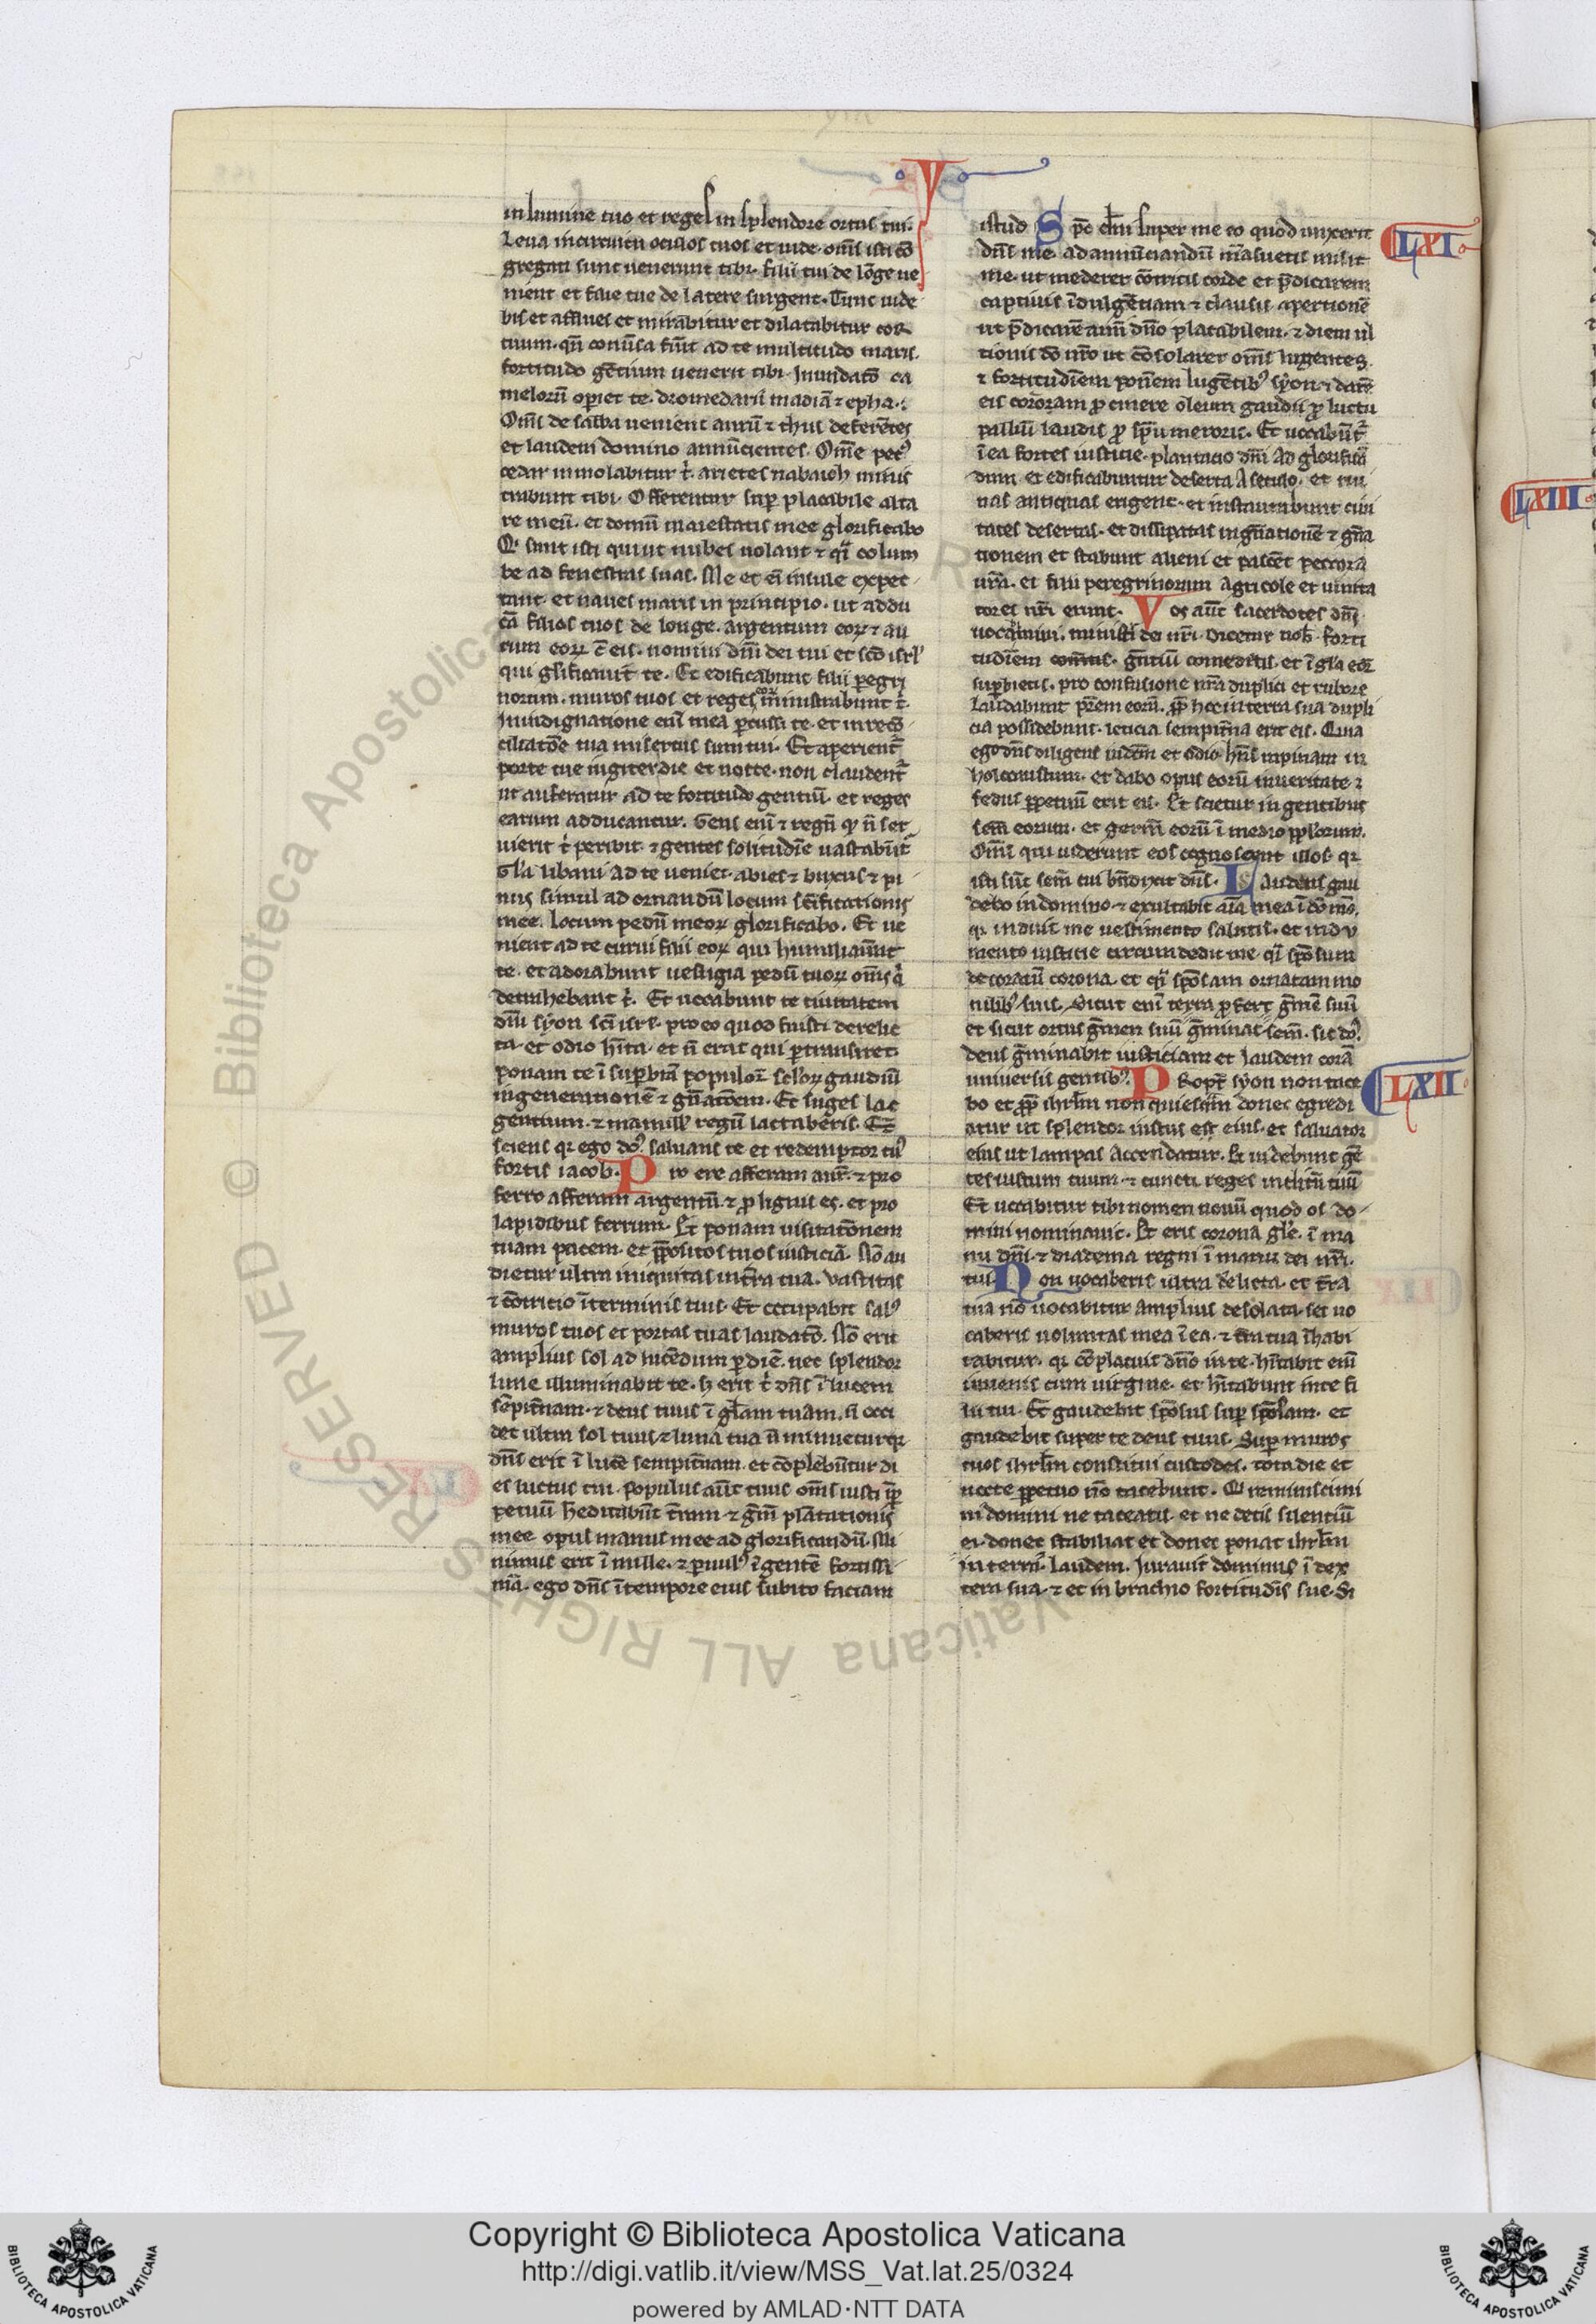 V
in lumine tuo et reges in splendore ortus tui.
Leua in circuitu oculos tuos et uide. oms̄ isti cō
gregati sunt uenerunt tibi. filii tui de lōge ue
nient et filie tue de latere surgent. Tunc uide
bis et afflues et mirabitur et dilatabitur cor
tuum. qn̄ conuˀsa fuīt ad te multitudo maris.
fortitudo gētium uenerit tibi. Inundatō ca
melorū opiet te. dromedarii madiā ⁊ epha.
Oms̄ de sabba uenient aurū ⁊ thus deferētes
et laudem domino annūcientes. Om̄e pecˀ
cedar immolabitur t̄. arietes nabaioh minis
trabunt tibi. Offerentur sup̄ placabile alta
re meū. et domū maiestatis mee glorificabo
Qͥ sunt isti qui ut nubes uolant ⁊ qͣi colum
be ad fenestras suas. Me et eī insule expec
tant. et naues maris in principio. ut addu
cā filios tuos de longe. argentum eoꝝ ⁊ au
rum eoꝝ c̄ eis. nomini dn̄i dei tui et sc̄o isrl̓
qui gl̓ificauit te. Et edificabunt filii pegri
norum. muros tuos et reges eoꝝ ministrabunt t̄.
In indignatione enī mea pcussi te. et in recō
ciliatōe tua misertus sum tui. Et aperientˀ
porte tue iugiter die et nocte. non claudentˀ
ut auferatur ad te fortitudo gentiū. et reges
earum adducantur. Gens enī ⁊ regn̄ qͥ n̄ ser
uierit t̄ peribit. ⁊ gentes solitudīe uastabūtˀ
Gl̓a libani ad te ueniet. abies ⁊ buxus ⁊ pi
nus simul ad ornandū locum sc̄ificationis
mee. locum pedū meoꝝ glorificabo. Et ue
nient ad te curui filii eoꝝ qui humiliauīt
te. et adorabunt uestigia pedū tuoꝝ oms̄ qͥ
detrahebant t̄. Et uocabunt te ciuitatem
dn̄i syon sc̄i isrl̓. pro eo quod fuisti derelic
ta. et odio hīta. et n̄ erat qui ptransiret.
ponam te ī supbiā populoꝝ scl̓oꝝ gaudiū
in generationē ⁊ gn̄atōem. Et suges lac
gentium. ⁊ mamill̓ regū lactaberis. Et
sciens qꝛ ego dōˀ. saluans te et redemptor tuˀ
fortis iacob. Pro ere afferam aur̄. ⁊ pro
ferro afferam argentū. ⁊ ꝓ lignis es. et pro
lapidibus ferrum. Et ponam uisitatōnem
tuam pacem. et ppositos tuos iusticiā. Nō au
dietur ultra iniquitas in tˀra tua. uastitas
⁊ cōtritio ī terminis tuis. Et occupabit salˀ
muros tuos et portas tuas laudatō. Nō erit
amplius sol ad lucēdum p diē. nec splendor
lune illuminabit te. s̓ erit t̄ dn̄s ī lucem
sēpitˀnam. ⁊ deus tuus ī gl̓am tuam. n̄ occi
det ultra sol tuus ⁊ luna tua n̄ minuetur qꝛ
dn̄s erit ī lucē sempitˀnam. et cōplebūtur di
es luctus tui. Populus aūt tuus oms̄ iusti īp
petuū heditabūt tˀram ⁊ gˀm̄ plātationis
mee opus manus mee ad glorificandū. Mi
nimus erit ī mille. ⁊ puulˀ ī gentē fortissi
mā. ego dn̄s ī tempore eius subito faciam
istud Spc̄ dn̄i super me eo quod unxerit
dn̄s me. ad annūciandū māsuetis misit
me. ut mederer cōtritis corde et pˀdicarem
captiuis īdulgētiam ⁊ clausis apertionē
ut pˀdicarē annū dn̄o placabilem. ⁊ diem ul
tionis dō nrō ut cōsolarer oms̄ lugentes.
⁊ fortitudīem ponēem lugētibˀ syon. ⁊ darē
eis coronam ꝓ cinere oleum gaudii ꝓ luctu
palliū laudis ꝓ spū meroris. Et uocabūtˀ
ī ea fortes iusticie. plantacio dn̄i ad glorificā
dum et edificabuntur deserta a seculo. et rui
nas antiquas erigent. et instaurabunt ciui
tates desertas. et dissipatas in gn̄ationē ⁊ gn̄a
tionem et stabunt alieni et pascēt peccora
urā. et filii peregrinorum agricole et uinita
tores nrī erunt. Vos aūt sacerdotes dn̄i
uocabimini. ministi dei nrī. dicetur uob̄. forti
tudīem gn̄tiū comeditis. et ī gl̓a eoꝝ
supbietis. pro confusione urā duplici et rubore
laudabunt pr̄em eorū. ꝓp̄ hoc in terra sua dupli
cia possidebunt. leticia sempitˀna erit eis. Quia
ego dn̄s diligens iudiciū et odio hn̄s rapinam in
holocaustum. et dabo opus eorū in ueritate ⁊
fedus ppetuū erit eis. Et scietur in gentibus
sem̄ eorum. et germ̄ eorū ī medio ppl̓orum.
Oms̄ qui uiderint eos cognoscent illos qꝛ
isti sūt sem̄ cui bn̄dixit dn̄s. Gaudens gau
debo in domino. ⁊ exultabit aīa mea ī dō mō.
qꝛ induit me uestimento salutis. et indu
mento iusticie circumdedit me. qͣi spōsum
decoratū corona. et qͣi spōsam ornatam mo
nilibˀ suis. Sicut enī terra ꝓfert gˀmē suū
et sicut ortus gˀmen suū gˀminat sem̄. sic dōˀ.
deus gˀminabit iusticiam et laudem corā
uniuersis gentibˀ. Propt̄ syon non tace
bo et ꝓp̄ ihrl̓m non quiescā donec egredi
atur ut splendor iustus est eius. et saluator
eius ut lampas accendatur. Et uidebunt gē
tes iustum tuum. ⁊ cuncti reges inclitū tuū
Et uocabitur tibi nomen nouū quod os do
mini nominauit. Et eris corona gl̓e ī ma
nu dn̄i. ⁊ diadema regni ī manu dei nrī.
tui. Non uocaberis ultra delicta. et tˀra
tua nō uocabitur amplius desolata. set uo
caberis uoluntas mea ī ea. ⁊ tˀra tua īhabi
tabitur. qꝛ cōplacuit dn̄o in te. hītabit enī
iuuenis cum uirgine. et hītabunt in te fi
lii tui. Et gaudebit spōsus sup̄ spōsam. et
gaudebit super te deus tuus. Sup muros
tuos ihrl̓m constitui custodes. tota die et
nocte ppetuo nō tacebunt. Qͥ reminiscimi
ni domini ne taceatis. et ne detis silentiū
ei. donec stabiliat et donec ponat ihrl̓m
in terrā. laudem. Iurauit dominus ī dex
tera sua. ⁊ et in brachio fortitudīs sue. Si
LXI
LXII
LXIII
© Biblioteca Apostolica Vaticana ALL RIGHTS RESERVED
Copyright © Biblioteca Apostolica Vaticana
http://digi.vatlib.it/view/MSS_Vat.lat.25/0324
powered by AMLAD·NTT DATA
BIBLIOTECA APOSTOLICA VATICANA
BIBLIOTECA APOSTOLICA VATICANA